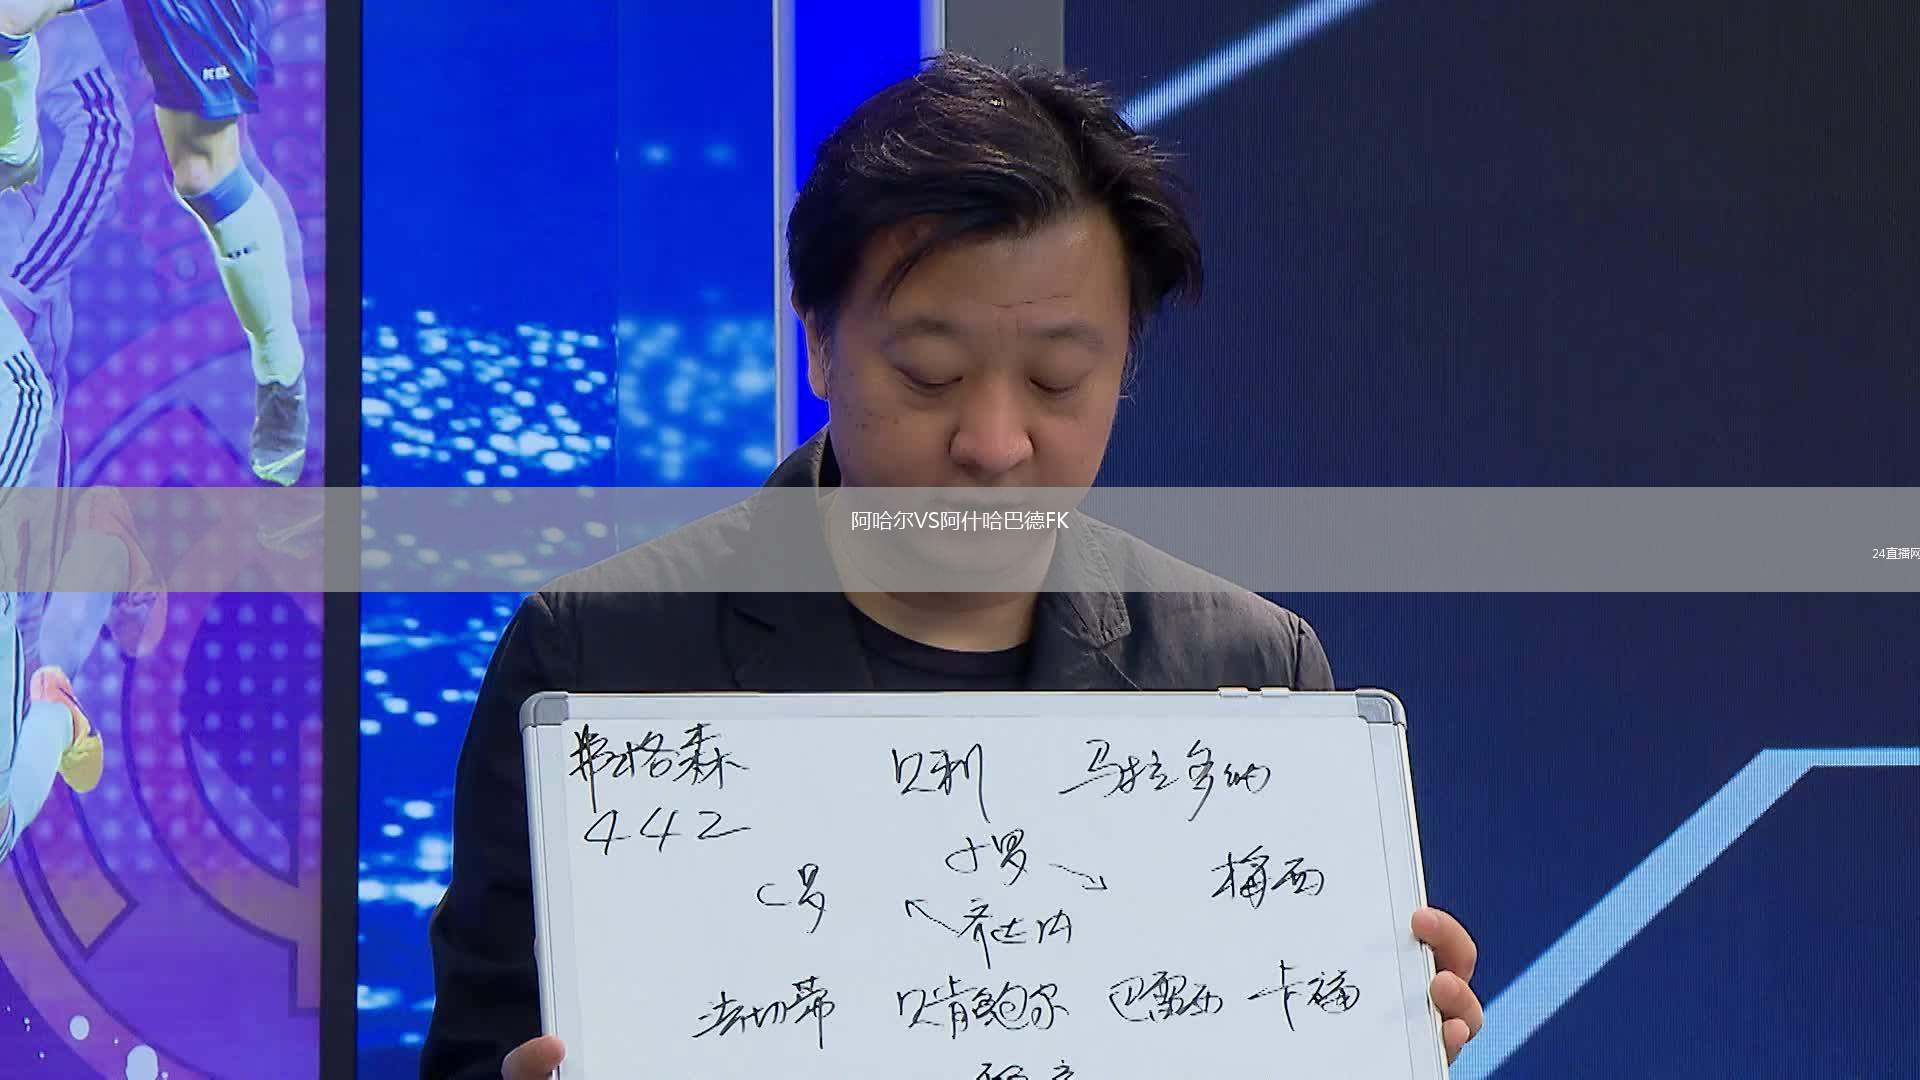 阿哈尔VS阿什哈巴德FK
24直播网
弗格森 贝利 马拉多纳
442
小罗
C罗 梅西
齐达内
法切蒂 贝肯鲍尔 巴雷西 卡福